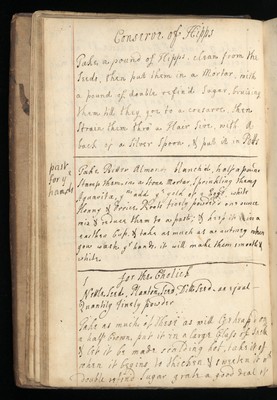 Conserve of Hipps
Take a pound of Hipps, clean from the
Seeds, then putt them in a Mortar, with
a pound of double refin'd Sugar, bruising
them till they goe to a conserve, then
Strain them thro a Hair Sive, with a
back of a Silver Spoon, & putt it in Potts
past
for yͤ
hands
Take Bitter Almonds blanch'd, half a pound
Stamp them in a stone Mortar, sprinkling them
& yͤ yolk of an Egg, white
Hony & Orrice Roots finely powder'd
mix & reduce them to a past, & keep it in
earthen Cup, & take as much as a nutmeg when
you wash yͬ hands it will make them smooth &
white
for the Chollick
Nettle Seed, Plantin Seed, Dill Seed, an equal
Quantity finely powder
Take as much of these as will
a half Crown, put it in a large Glass of Sack
& let it be made scalding hot, take it of
when it begins to thicken & sweeten it
double refind Sugar grate a good deal of